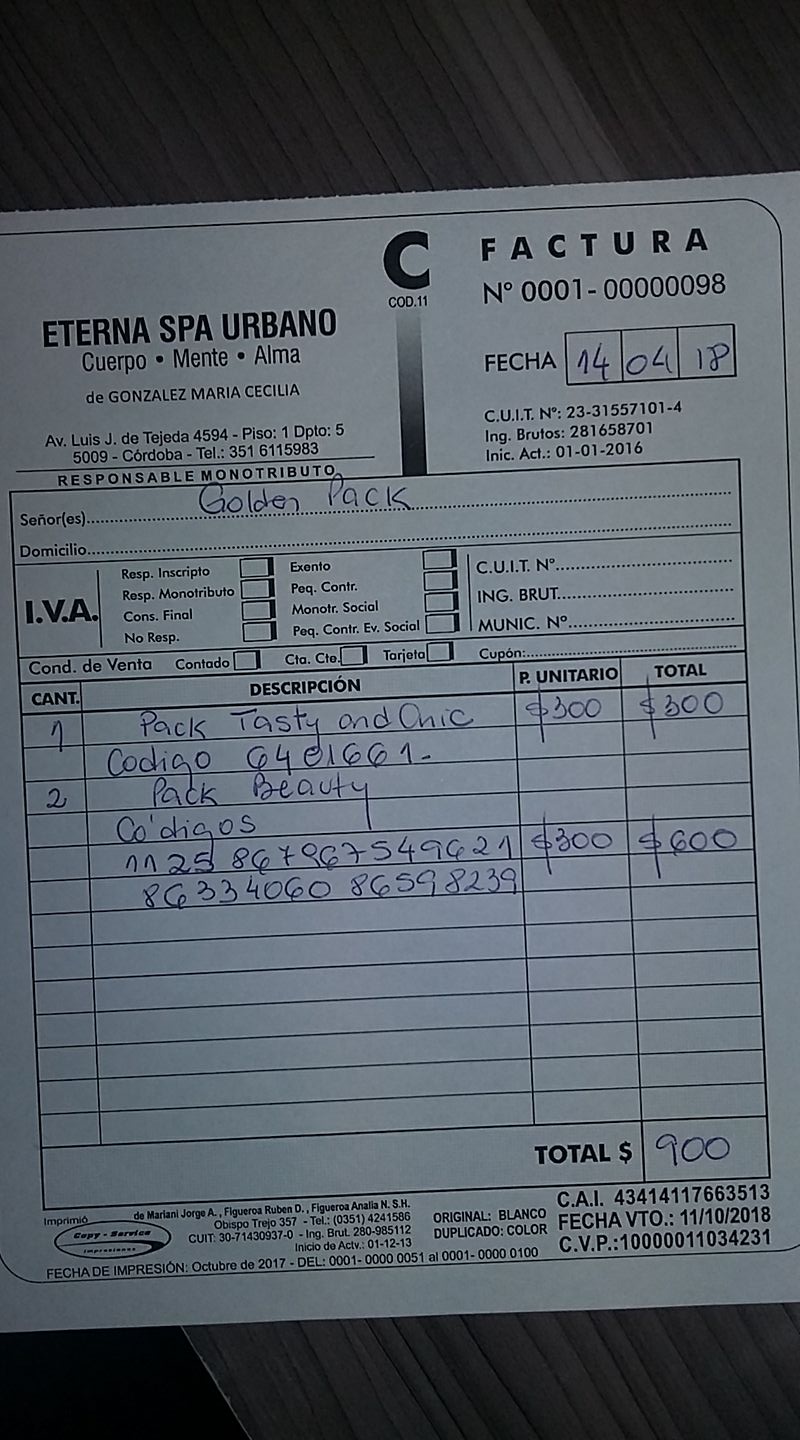 C
COD.11
FACTURA
Nº 0001-00000098
ETERNA SPA URBANO
Cuerpo • Mente • Alma
de GONZALEZ MARIA CECILIA
FECHA 14 04 18
Av. Luis J. de Tejeda 4594 - Piso: 1 Dpto: 5
5009 - Córdoba - Tel.: 351 6115983
RESPONSABLE MONOTRIBUTO
C.U.I.T. Nº: 23-31557101-4
Ing. Brutos: 281658701
Inic. Act.: 01-01-2016
Señor(es) Golden Pack
Domicilio
I.V.A.
Resp. Inscripto
Resp. Monotributo
Cons. Final
No Resp.
Exento
Peq. Contr.
Monotr. Social
Peq. Contr. Ev. Social
C.U.I.T. Nº
ING. BRUT.
MUNIC. Nº
Cond. de Venta Contado Cta. Cte. Tarjeta Cupón:
CANT. DESCRIPCIÓN P. UNITARIO TOTAL
1 Pack Tasty and Chic $300 $300
Codigo 6401661-
2 Pack Beauty
Códigos
1125 867967549621 $300 $600
86334060 86598239
TOTAL $ 900
Imprimió
Copy - Service
Impresiones
de Mariani Jorge A., Figueroa Ruben D., Figueroa Analia N. S.H.
Obispo Trejo 357 - Tel.: (0351) 4241586
CUIT: 30-71430937-0 - Ing. Brut. 280-985112
Inicio de Actv.: 01-12-13
ORIGINAL: BLANCO
DUPLICADO: COLOR
C.A.I. 43414117663513
FECHA VTO.: 11/10/2018
C.V.P.:10000011034231
FECHA DE IMPRESIÓN: Octubre de 2017 - DEL: 0001- 0000 0051 al 0001- 0000 0100